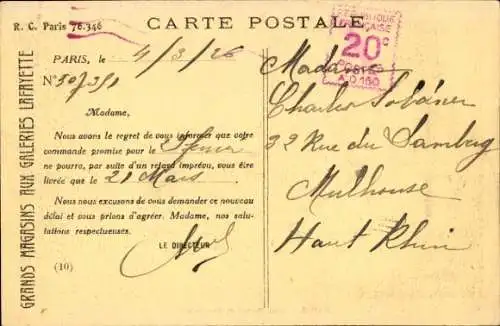 R. C. Paris 76.346
CARTE POSTALE
RÉPUBLIQUE
FRANÇAISE
20c
POSTES
PARIS, le 4/3/26
N° 507351
Madame,
Nous avons le regret de vous informer que votre
commande promise pour le
ne pourra, par suite d'un retard imprévu, vous être
livrée que le 21 Mars
Nous nous excusons de vous demander ce nouveau
délai et vous prions d'agréer. Madame, nos salu-
tations respectueuses.
LE DIRECTEUR
(10)
GRANDS MAGASINS AUX GALERIES LAFAYETTE
Madame
Charles
32 Rue du
Mulhouse
Haut Rhin